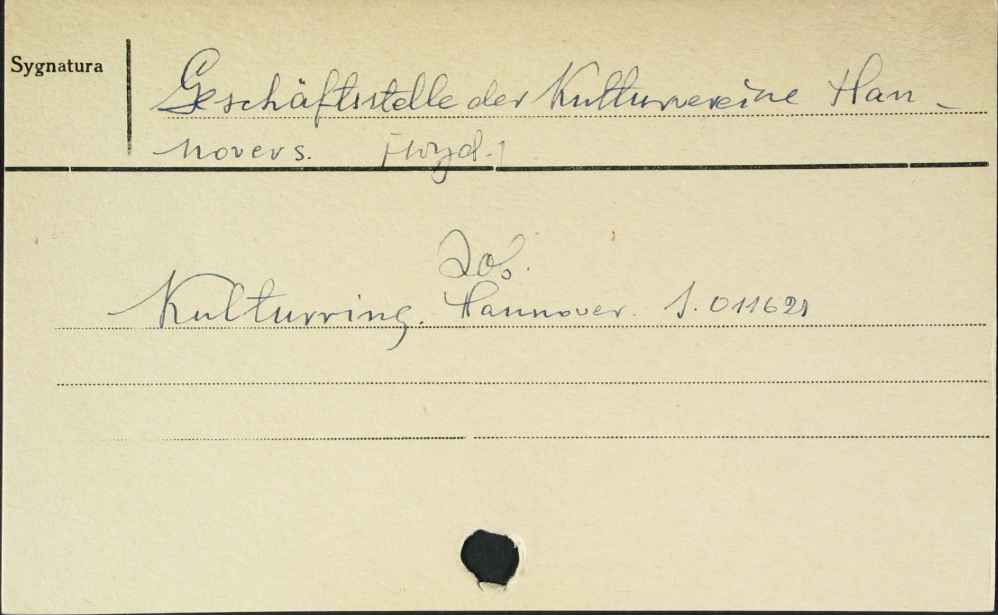 Sygnatura
Geschäftsstelle der Kulturvereine Han-
novers. [wyd.]
Zob.
Kulturring. Hannover. S. 011621